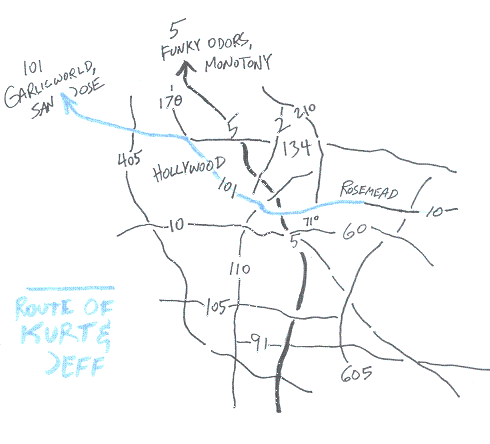 5
FUNKY ODORS,
MONOTONY
101
GARLICWORLD,
SAN JOSE
170
5
2
210
134
405
HOLLYWOOD
101
ROSEMEAD
710
10
10
5
60
110
105
91
605
ROUTE OF
KURT &
JEFF